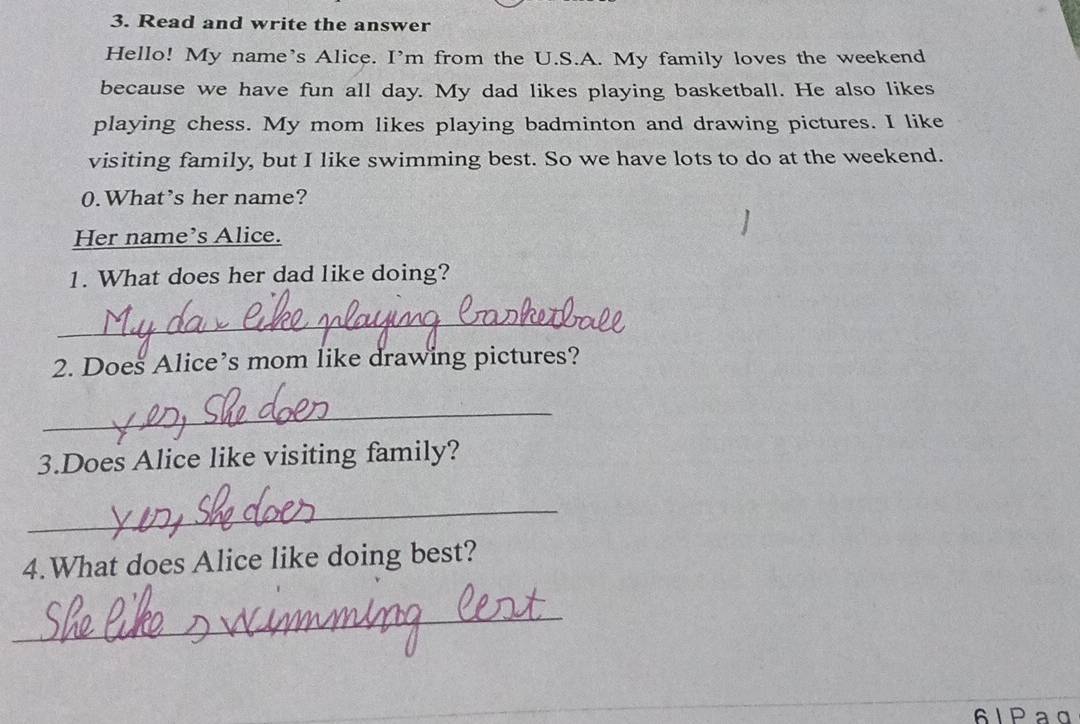 3. Read and write the answer
Hello! My name's Alice. I'm from the U.S.A. My family loves the weekend
because we have fun all day. My dad likes playing basketball. He also likes
playing chess. My mom likes playing badminton and drawing pictures. I like
visiting family, but I like swimming best. So we have lots to do at the weekend.
0. What's her name?
Her name's Alice.
1. What does her dad like doing?
My like playing
2. Does Alice's mom like drawing pictures?
yes, She does
3.Does Alice like visiting family?
yes, She does
4. What does Alice like doing best?
She like swimming best
6 | P a g